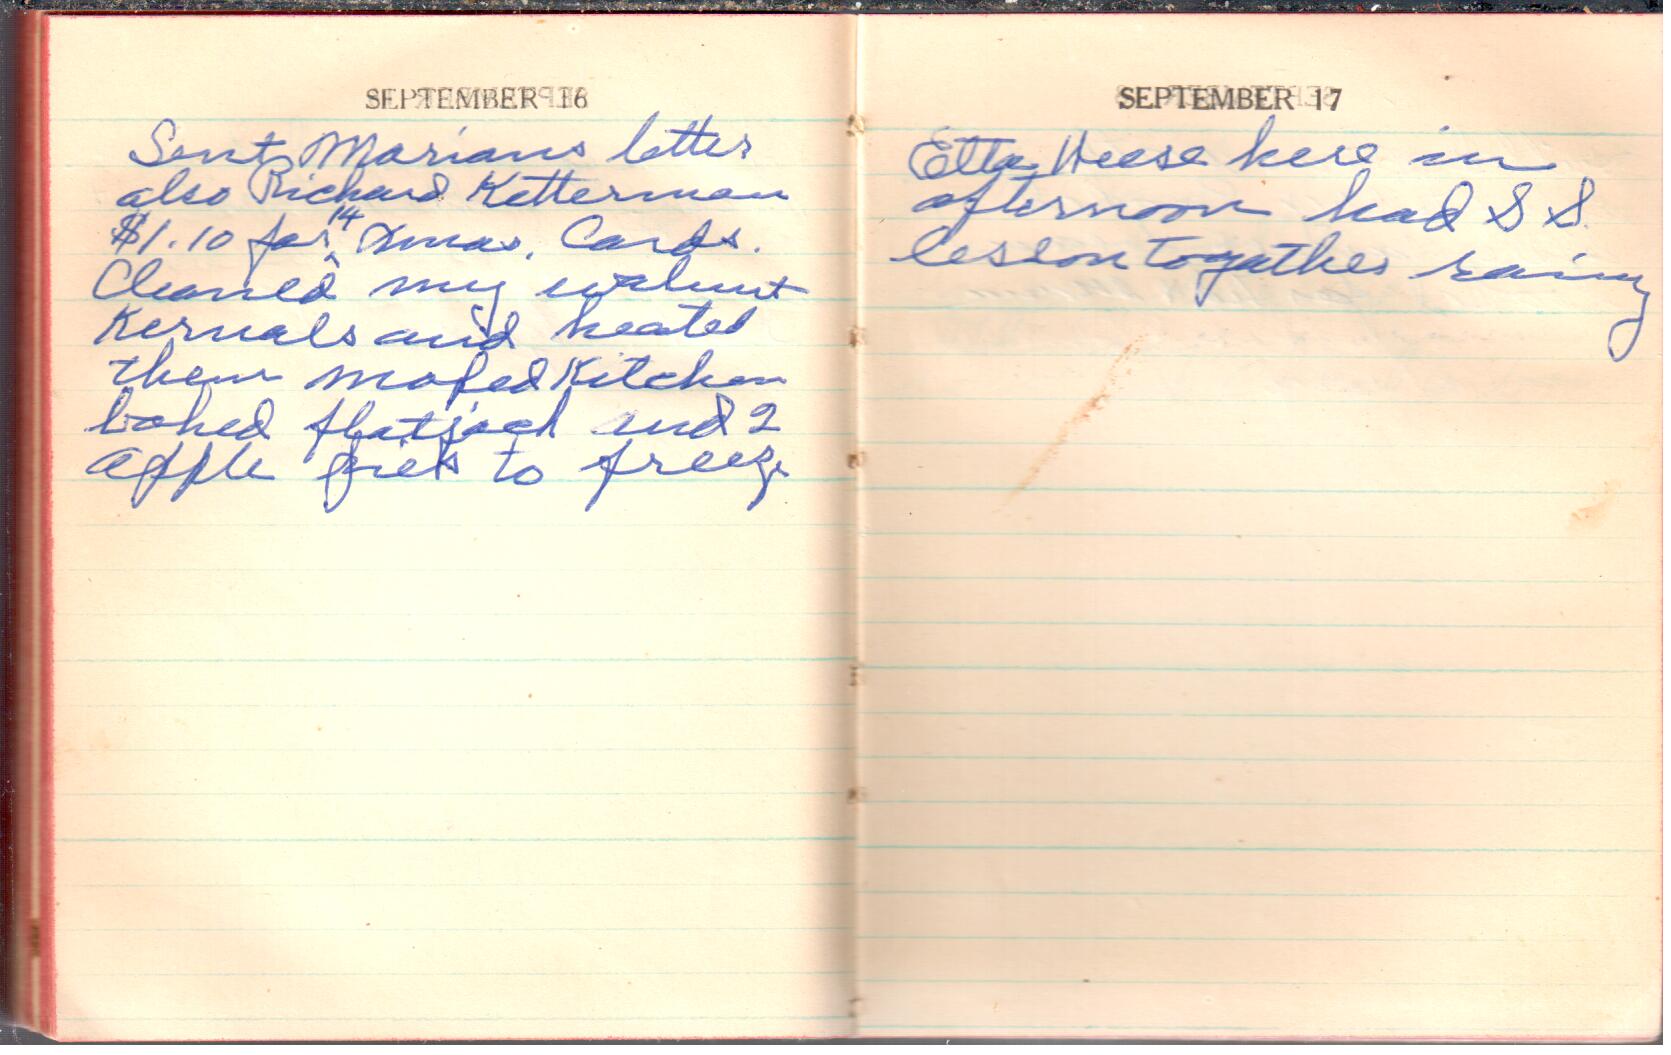 SEPTEMBER 16
Sent Marians letter
also Richard Ketterman
$1.10 for 14 Xmas. Cards.
Cleaned my walnut
Kernals and heated
them moped Kitchen
baked flatjack and 2
apple pies to freeze
SEPTEMBER 17
Etta Heese here in
afternoon had S S.
lesson togather rainy